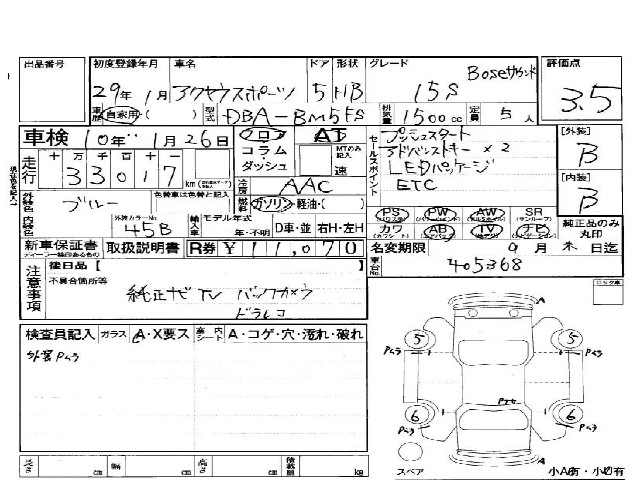 出品番号 初度登録年月 車名 ドア 形状 グレード 評価点
29年 1月 アクセラスポーツ 5 HB 15S Boseサウンド 3.5
車歴 自家用・( ) 型式 DBA-BM5FS 排気量 1500cc 定員 5人
車検 10年 1月 26日 フロア コラム・ダッシュ AT MTのみ記入 速
走行 十万千百十一 33017 km
冷房 AAC
セールスポイント プッシュスタート
アドバンストキー×2
LEDパッケージ
ETC
[外装] B
[内装] B
外装色 ブルー 色替車は色替と記入
燃料 ガソリン・軽油・( )
PS PW AW SR
カワ AB TV ナビ
純正品のみ丸印
内装色 外装カラーNo. 45B 輸入車 モデル年式 年・不明 D車・並 右H・左H
新車保証書 取扱説明書 R券 ¥11,070 名変期限 9月 末日迄
車台No. 405368
注意事項 後日品【
不具合箇所等
純正ナビTV バックカメラ
ドラレコ
ロック車
検査員記入 ガラス A・X要ス 室内シート A・コゲ・穴・汚れ・破れ
外装Pムラ
5 5
Pムラ Pムラ
6 6
Pムラ Pムラ
A
A
スペア 小A有・小U有
長さ cm 幅 cm 高さ cm 積載量 kg